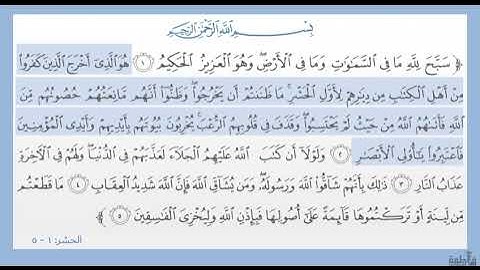 بِسْمِ اللَّهِ الرَّحْمَٰنِ الرَّحِيمِ
﴿ سَبَّحَ لِلَّهِ مَا فِي السَّمَاوَاتِ وَمَا فِي الْأَرْضِ ۖ وَهُوَ الْعَزِيزُ الْحَكِيمُ ١ هُوَ الَّذِي أَخْرَجَ الَّذِينَ كَفَرُوا
مِنْ أَهْلِ الْكِتَابِ مِن دِيَارِهِمْ لِأَوَّلِ الْحَشْرِ ۚ مَا ظَنَنتُمْ أَن يَخْرُجُوا ۖ وَظَنُّوا أَنَّهُم مَّانِعَتُهُمْ حُصُونُهُم مِّنَ
اللَّهِ فَأَتَاهُمُ اللَّهُ مِنْ حَيْثُ لَمْ يَحْتَسِبُوا ۖ وَقَذَفَ فِي قُلُوبِهِمُ الرُّعْبَ ۚ يُخْرِبُونَ بُيُوتَهُم بِأَيْدِيهِمْ وَأَيْدِي الْمُؤْمِنِينَ
فَاعْتَبِرُوا يَا أُولِي الْأَبْصَارِ ٢ وَلَوْلَا أَن كَتَبَ اللَّهُ عَلَيْهِمُ الْجَلَاءَ لَعَذَّبَهُمْ فِي الدُّنْيَا ۖ وَلَهُمْ فِي الْآخِرَةِ
عَذَابُ النَّارِ ٣ ذَٰلِكَ بِأَنَّهُمْ شَاقُّوا اللَّهَ وَرَسُولَهُ ۖ وَمَن يُشَاقِّ اللَّهَ فَإِنَّ اللَّهَ شَدِيدُ الْعِقَابِ ٤ مَا قَطَعْتُم
مِّن لِّينَةٍ أَوْ تَرَكْتُمُوهَا قَائِمَةً عَلَىٰ أُصُولِهَا فَبِإِذْنِ اللَّهِ وَلِيُخْزِيَ الْفَاسِقِينَ ٥ ﴾
الحشر: ١ - ٥